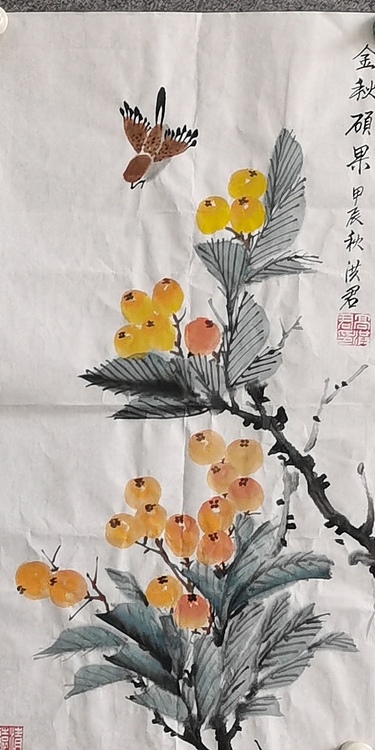 金秋硕果
甲辰秋洪君